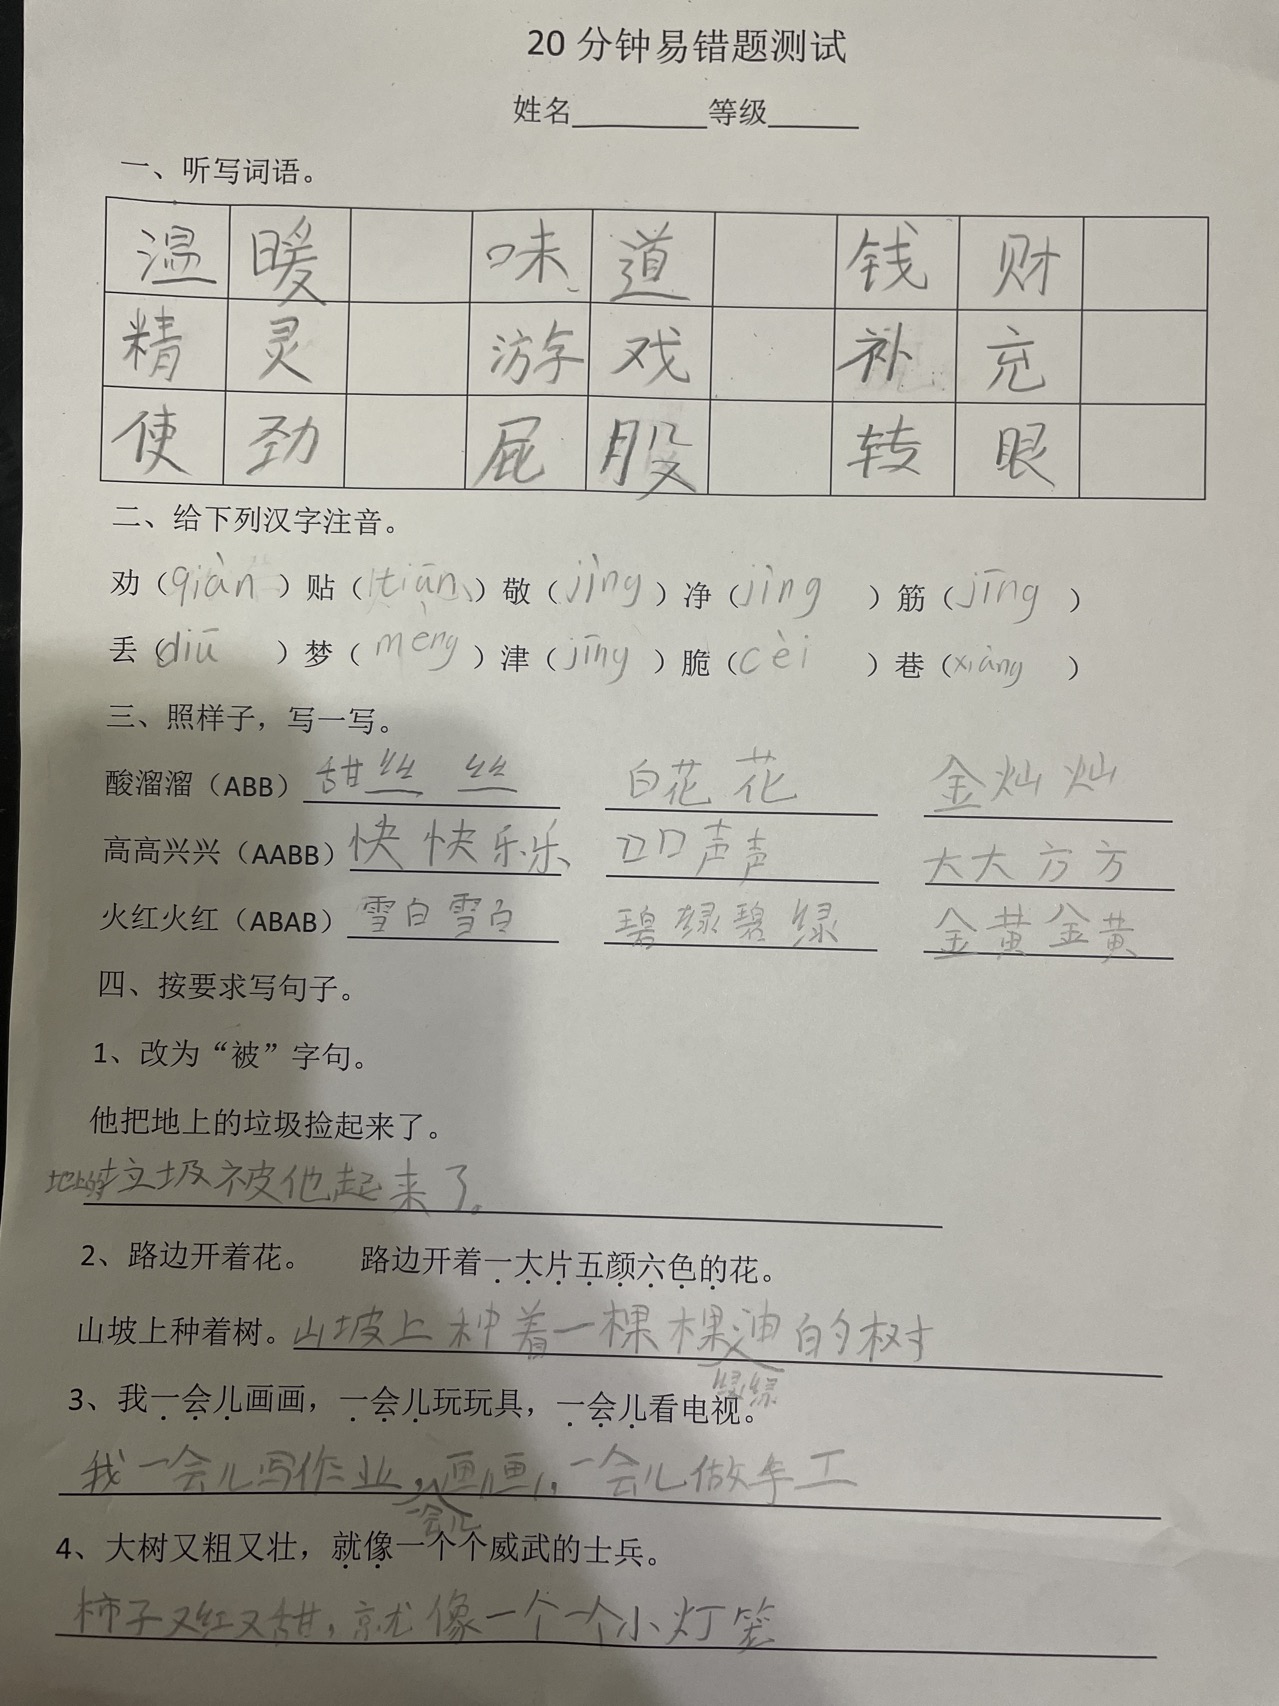 20 分钟易错题测试
姓名________等级_____
一、听写词语。
温 暖 味 道 钱 财
精 灵 游 戏 补 充
使 劲 屁 股 转 眼
二、给下列汉字注音。
劝（qiàn）贴（tiān）敬（jìng）净（jìng）筋（jīng）
丢（diū）梦（mèng）津（jīng）脆（cèi）巷（xiàng）
三、照样子，写一写。
酸溜溜（ABB）甜丝丝 白花花 金灿灿
高高兴兴（AABB）快快乐乐 口口声声 大大方方
火红火红（ABAB）雪白雪白 碧绿碧绿 金黄金黄
四、按要求写句子。
1、改为“被”字句。
他把地上的垃圾捡起来了。
地上的垃圾被他起来了。
2、路边开着花。 路边开着一大片五颜六色的花。
山坡上种着树。山坡上种着一棵棵油绿绿的树
3、我一会儿画画，一会儿玩玩具，一会儿看电视。
我一会儿写作业，一会儿画画，一会儿做手工
4、大树又粗又壮，就像一个个威武的士兵。
柿子又红又甜，就像一个一个小灯笼